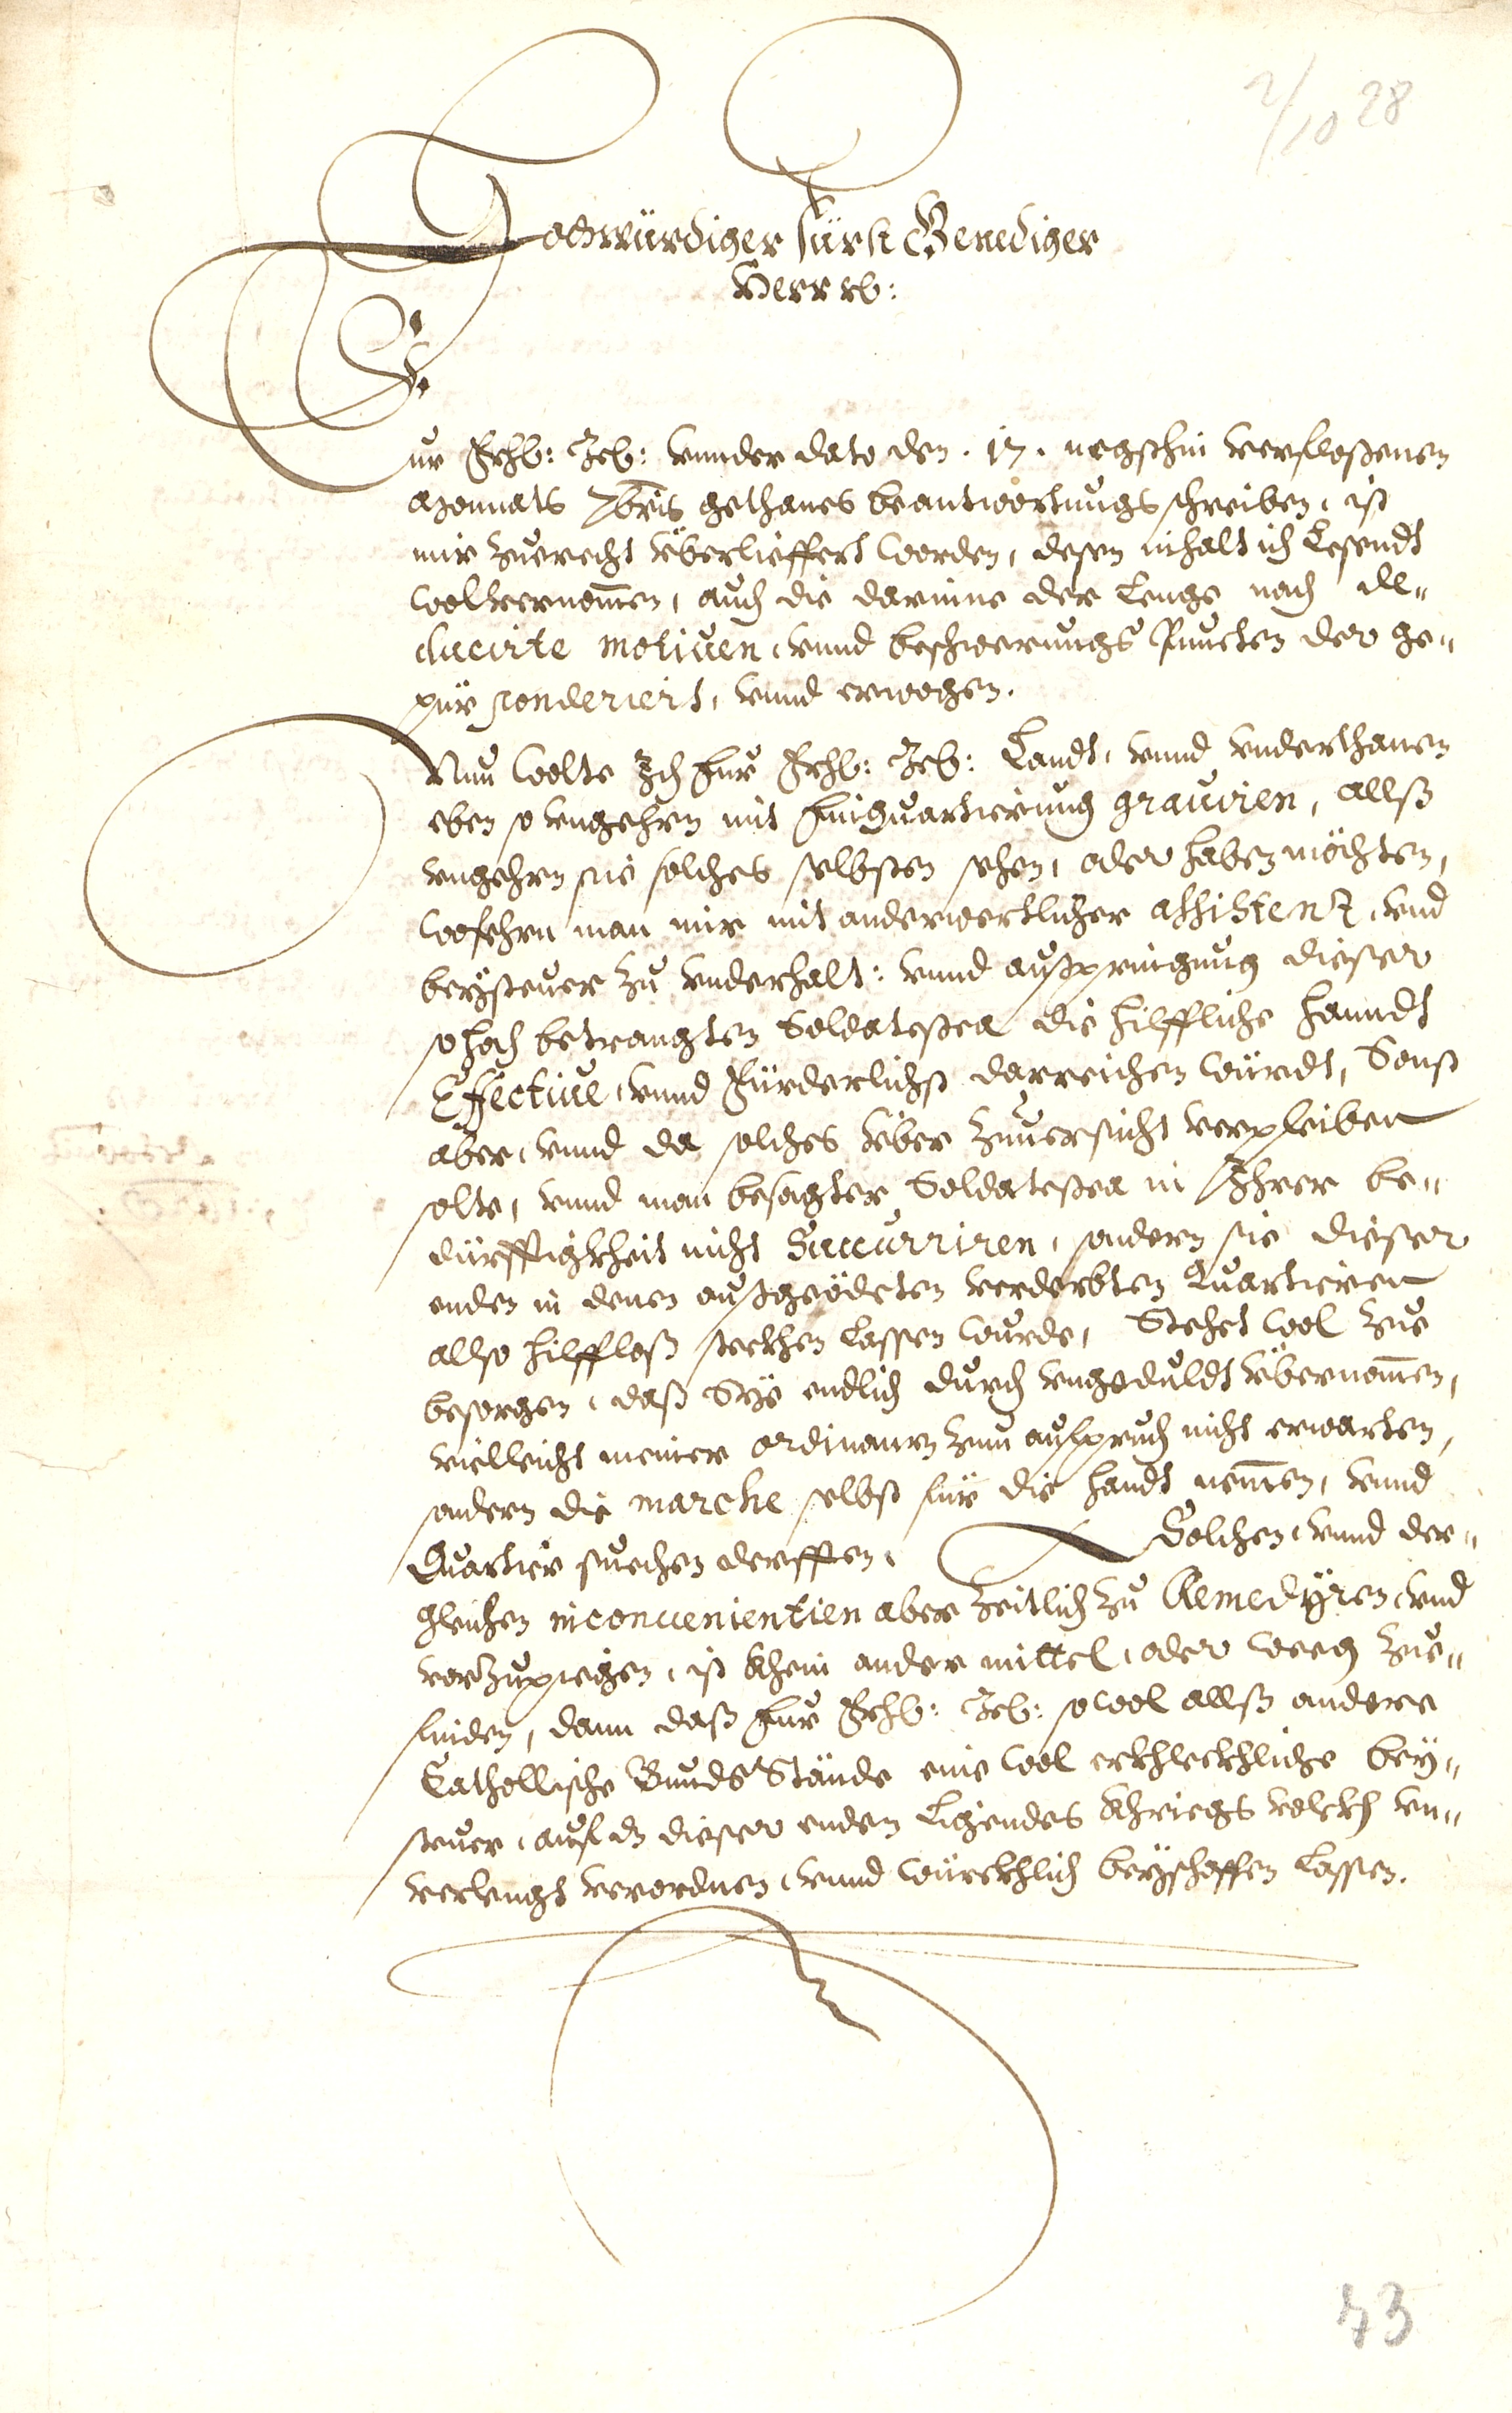 2/10 28
Hochwürdiger Fürst Genediger
Herr etc:
E
ur Frhl: Gd: vnnder dato den . 17 . negsthin verfloßenen
Monnats 7bris gethanes beantworttungs schreiben, ist
mir zuerecht vberlieffert worden, deßen inhalt ich Lesendt
wol vernomen, auch die darinne der Lenge nach de„
ducirte motiuen, vnnd beschwerungs Puncten der ge„
pür ponderiert, vnnd erwogen.
Nun wolte Ich Eur Frhl: Gd: Landt, vnnd vnderthanen
eben so vngehrn mit Einquartierung grauiren, allß
vngehrn sie solches selbsten sehen, oder haben möchten,
wofehrn man mir mit anderwertlicher assistentz, vnd
beysteuer zu vnderhalt: vnnd außpringung dieser
so hoch betrangten Soldatesca die hilffliche Hanndt
Effectiue, vnnd Fürderlichst darreichen würdt, Sonst
aber, vnnd da solches vber zuuersicht verpleiben
solte, vnnd man besagter Soldatesca in Ihrer be„
dürfftigkheit nicht Succurriren, sondern sie dieser
enden in denen außgeödeten verderbten Quartieren
allso hilffloß steckhen lassen wurde, Stehet wol zue
besorgen, daß Sye endlich durch vngeduldt vbernomen,
villeicht meiner ordinantz zum aufpruch nicht erwarten,
sondern die marche selbst für die handt nemen, vnnd
Quartier suechen derfften. Solchen, vnnd der„
gleichen inconuenientien aber zeitlich zu Remedyren, vnd
vorzupiegen, ist khein ander mittel, oder weeg zue„
finden, dann daß Eur Frhl: Gd: sowol allß andere
Catholische Bunds Stände eine wol erkhleckhliche bey„
steuer, auf dz dieser enden Ligendes Khriegs volckh vn„
verlengt verordnen, vnnd würckhlich beyschaffen lassen.
43